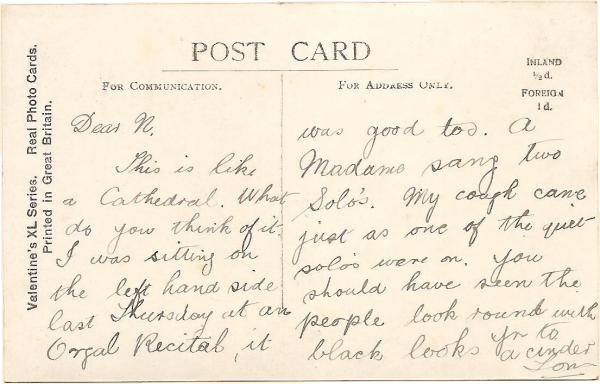 Valentine's XL Series. Real Photo Cards.
Printed in Great Britain.
POST CARD
FOR COMMUNICATION.
FOR ADDRESS ONLY.
INLAND
½d.
FOREIGN
1d.
Dear N.
This is like
a Cathedral. What
do you think of it.
I was sitting on
the left hand side
last Thursday at an
Orgal Recital, it
was good too. A
Madame sang two
Solo's. My cough came
just as one of the quiet
solo's were on. You
should have seen the
people look round with
black looks Yr to
a cinder